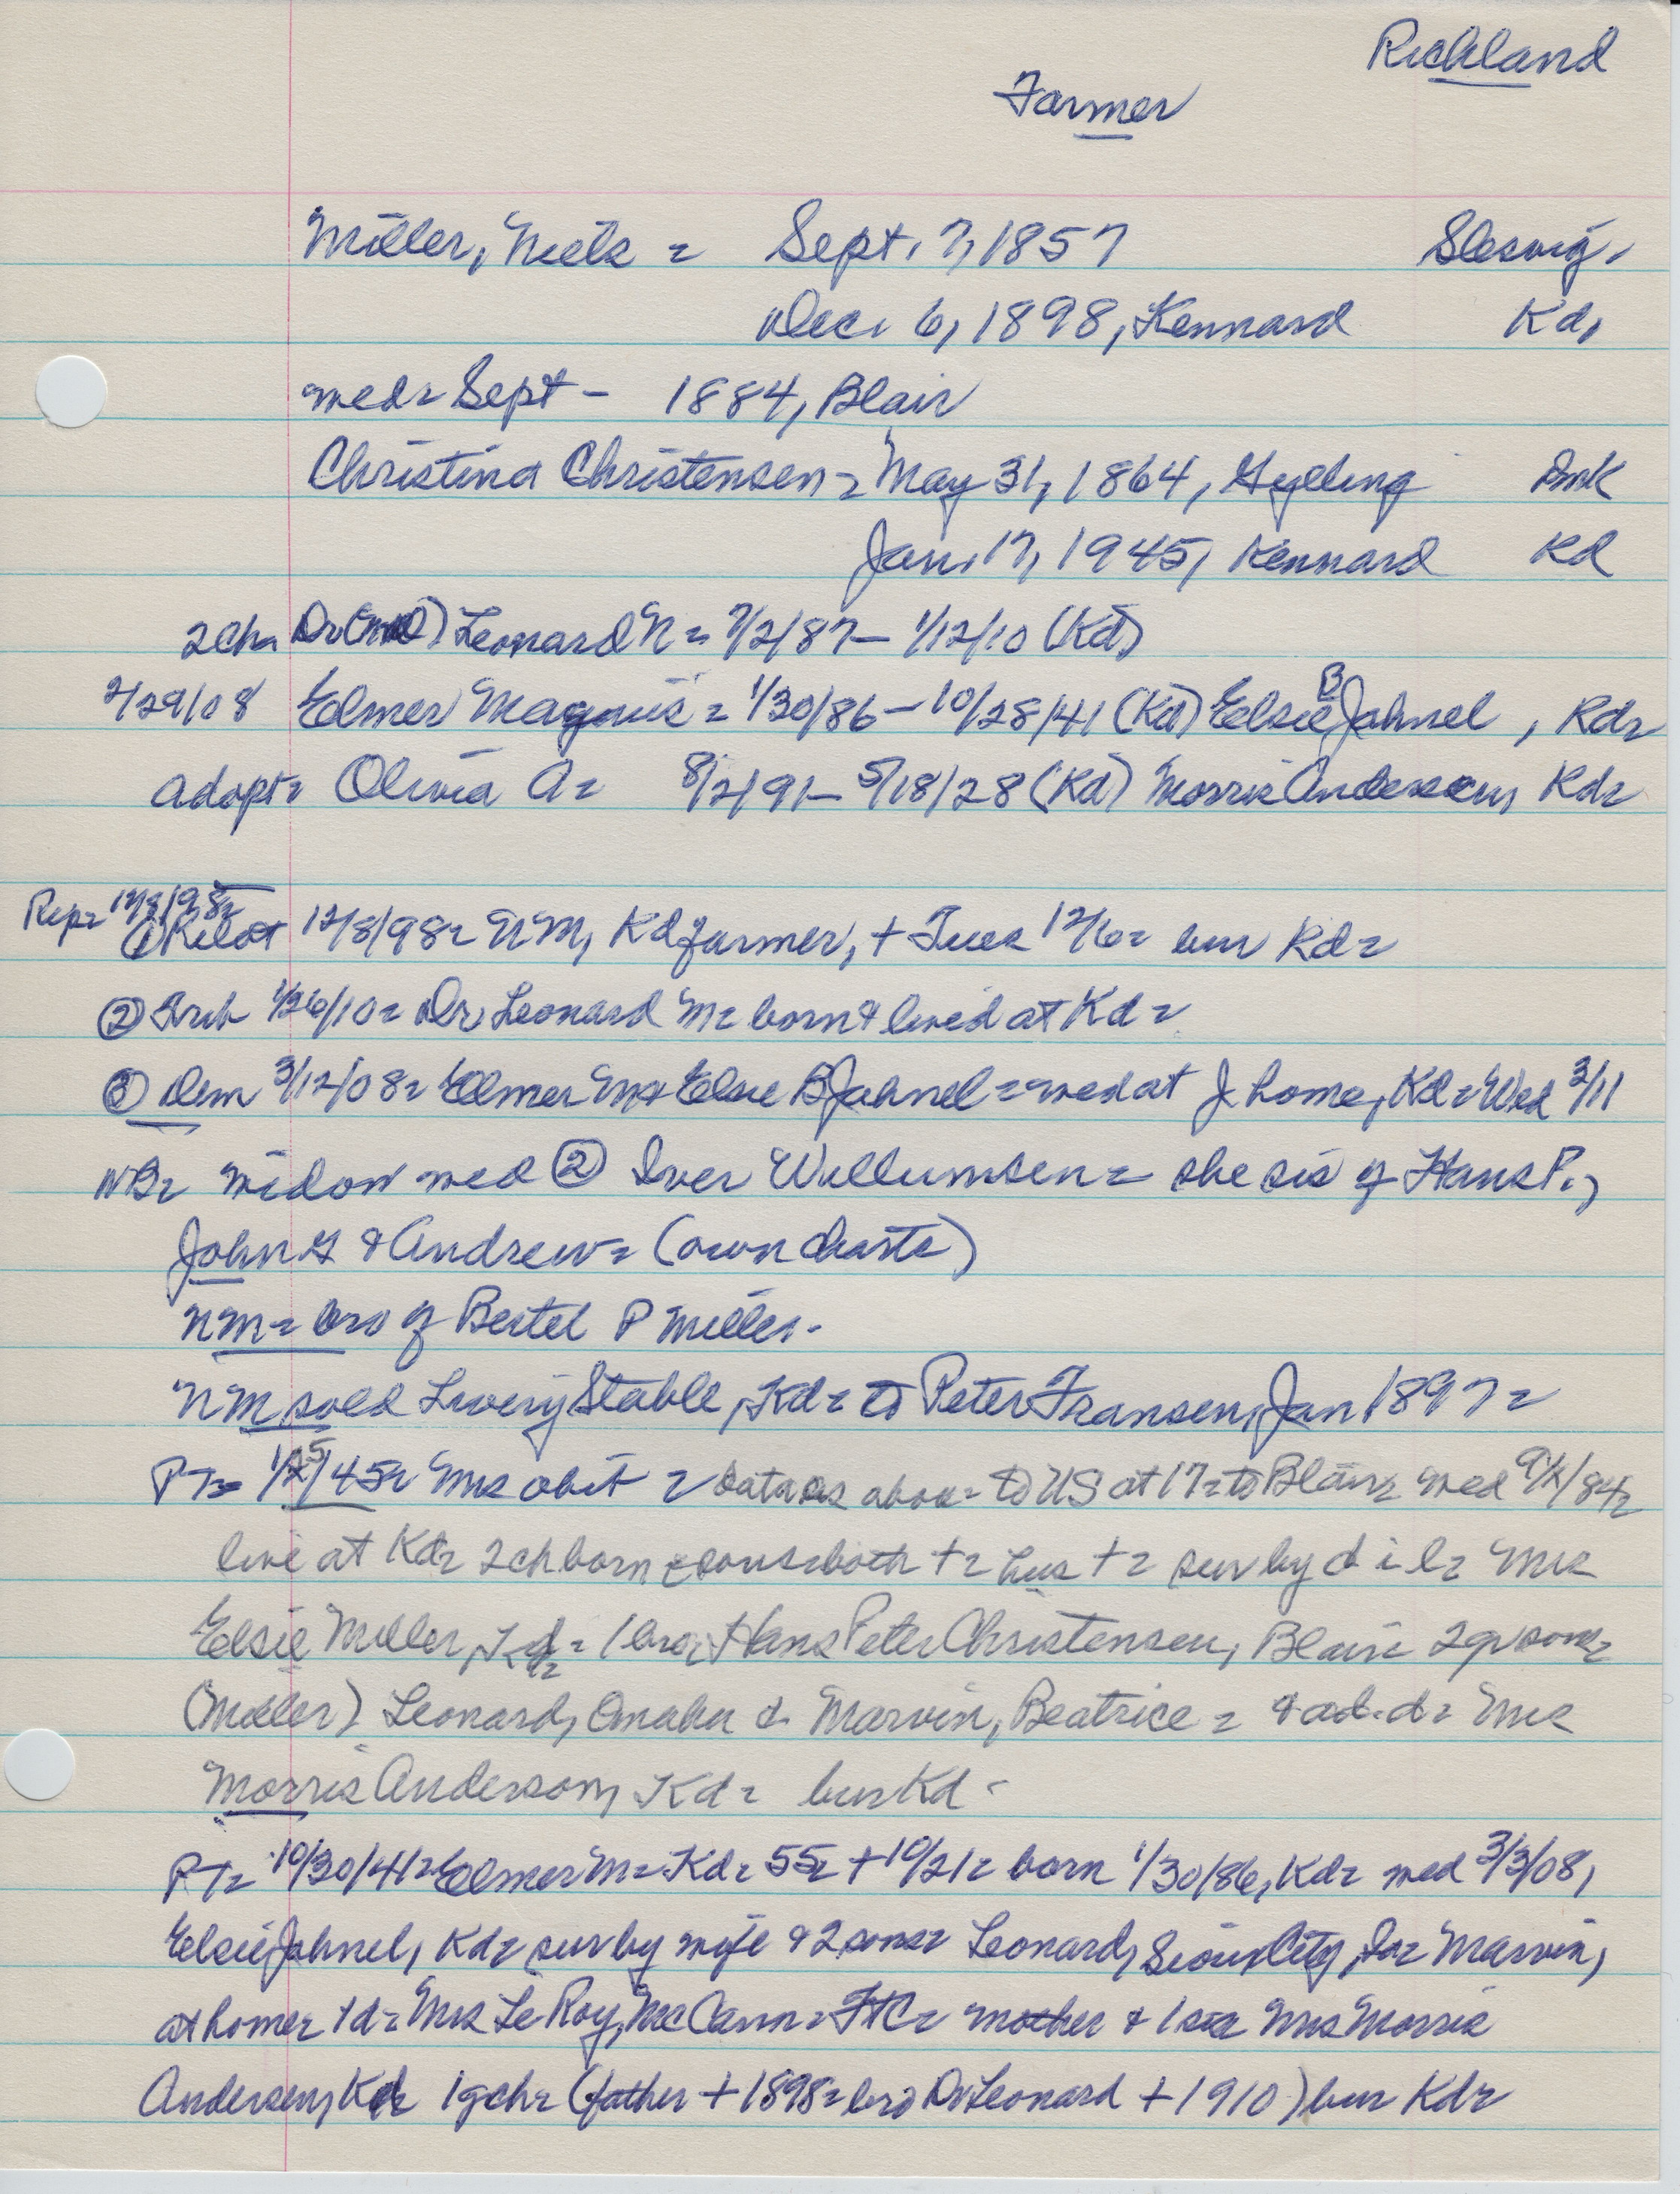 Richland
Farmer
Miller, Niels = Sept. 7, 1857 Slesvig,
Dec. 6, 1898, Kennard Kd,
med = Sept - 1884, Blair
Christina Christensen = May 31, 1864, Gylling Dmk
Jan. 17, 1945, Kennard Kd
2 ch = Dr (MD) Leonard N = 7/2/87 - 1/12/10 (Kd)
2/29/08 Elmer Magnus = 1/30/86 - 10/28/41 (Kd) Elsie B Jahnel, Kd =
adopt = Olivia A = 8/2/91 - 5/18/28 (Kd) Morris Andersen, Kd =
Rep = 12/8/98 =
① Pilot 12/8/98 = NM, Kd farmer, + Tues 12/6 = bur Kd =
② Trib 1/26/10 = Dr Leonard M = born & lived at Kd =
③ Dem 3/12/08 = Elmer M & Elsie B Jahnel = med at J home, Kd = Wed 3/11
NB = widow med ② Iver Willumsen = she sis of Hans P.,
John G & Andrew = (own charts)
NM = bro of Bertel P Miller -
NM sold Livery Stable, Kd = to Peter Fransen, Jan 1897 =
PT = 1/25/45 = Mrs obit = data as above = to US at 17 = to Blair = med 9/ /84 =
live at Kd = 2 ch born = sons = both + = hus + = sur by d i l = Mrs
Elsie Miller, Kd = 1 bro, Hans Peter Christensen, Blair = 2 gr sons =
(Miller) Leonard, Omaha & Marvin, Beatrice = & ad. d = Mrs
Morris Anderson, Kd = bur Kd -
PT = 10/30/41 = Elmer M = Kd = 55 = + 10/21 = born 1/30/86, Kd = med 3/3/08,
Elsie Jahnel, Kd = sur by wife & 2 sons = Leonard, Sioux City, Ia = Marvin,
at home = 1 d = Mrs Le Roy McCann = FtC = mother & 1 sis Mrs Morris
Andersen, Kd = 1 gch = (father + 1898 = bro Dr Leonard + 1910) bur Kd =